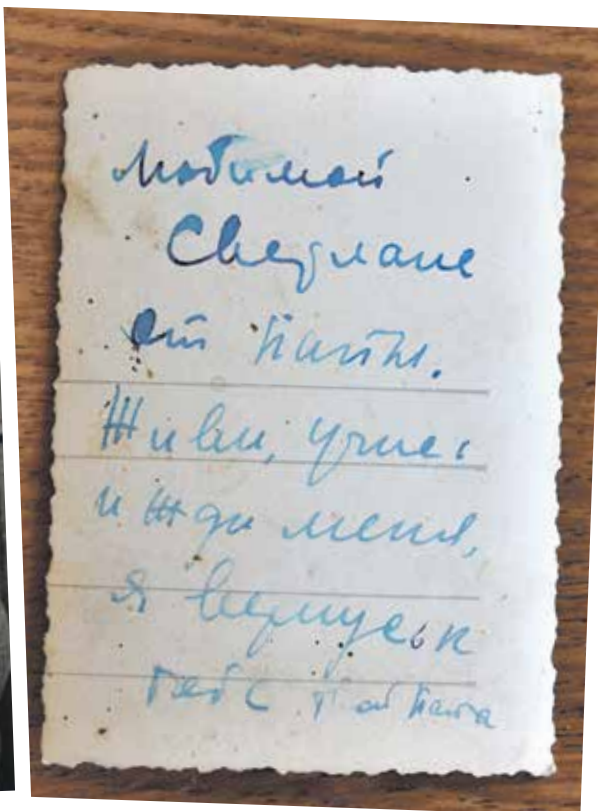 Любимой
Светлане
от папы.
Живи, учись
и жди меня,
я вернусь к
тебе твой папа